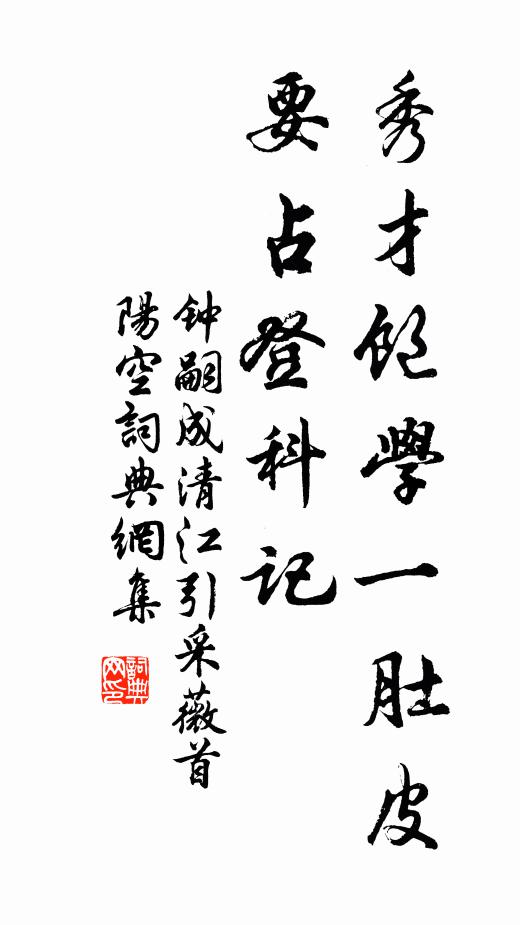 秀才飽學一肚皮
要占登科記
钟嗣成清江引采薇首
陽空詞典網集
詞典网印